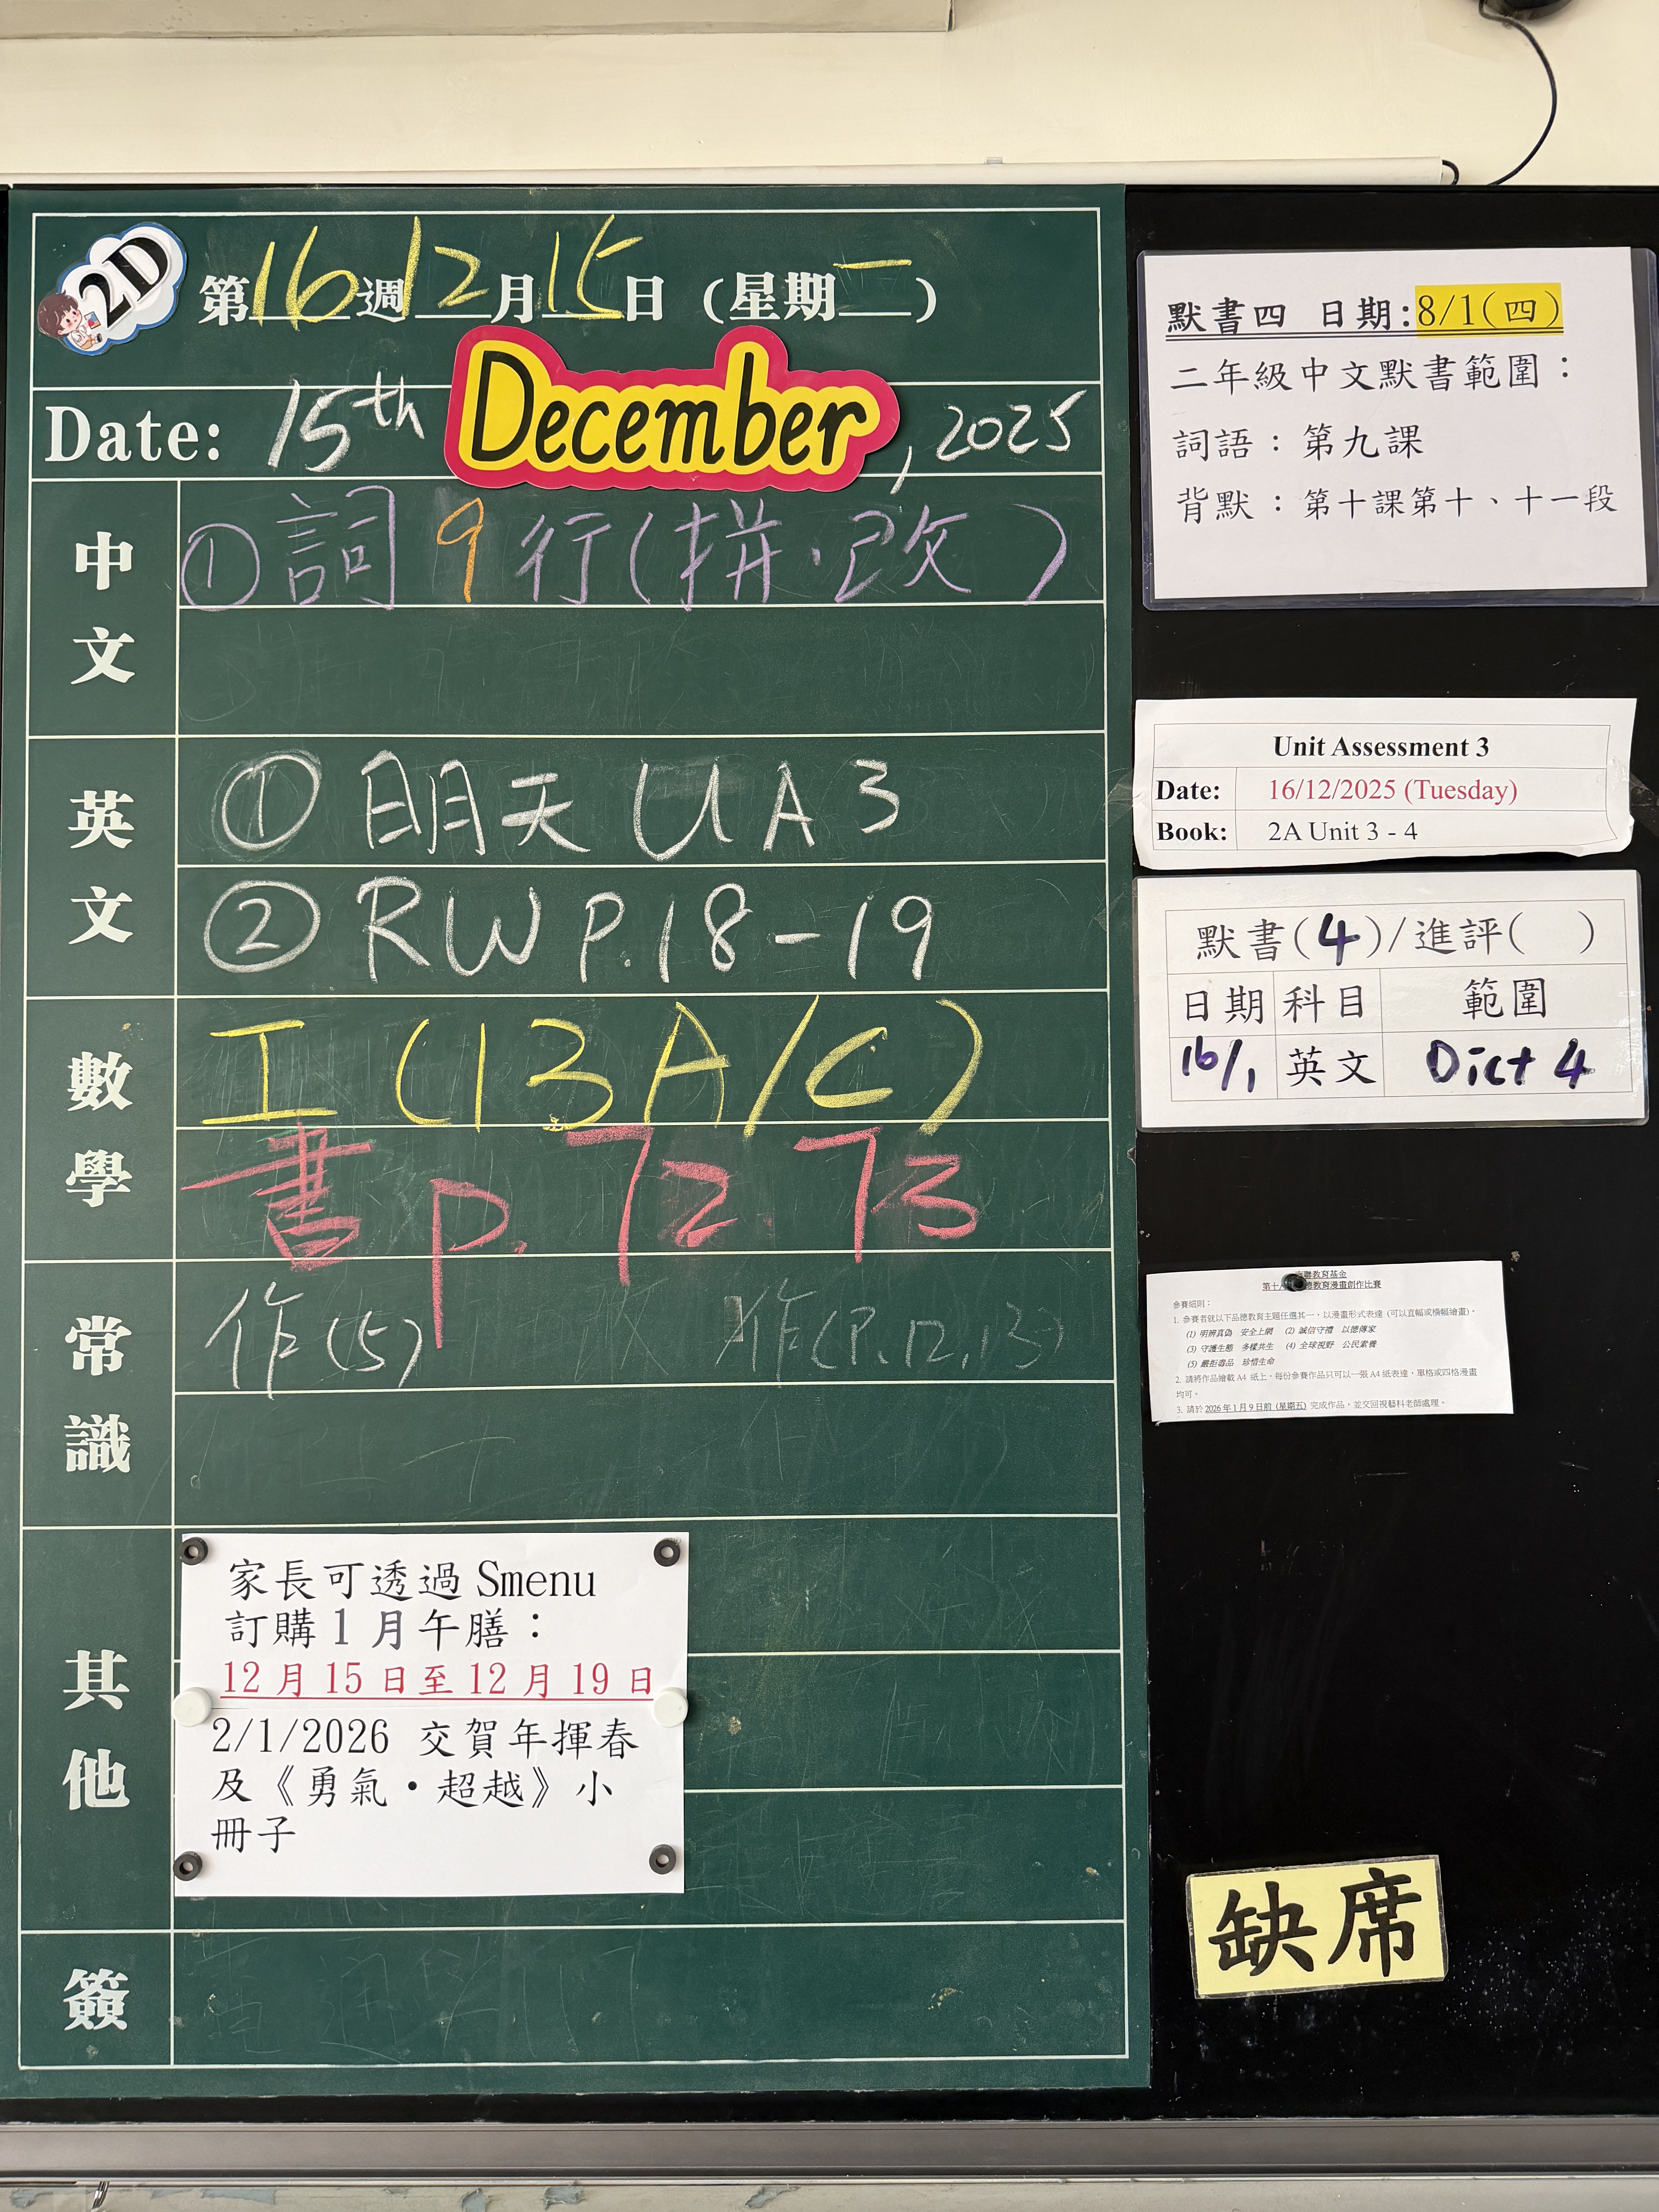 2D
第16週12月15日（星期一）
Date: 15th December, 2025
中文
① 詞9行(拼·改)
英文
① 明天 UA3
② RW P.18-19
數學
工(13A/C)
書p.72.73
常識
作(5) 作(P.12,13)
其他
家長可透過 Smenu
訂購1月午膳：
12月15日至12月19日
2/1/2026 交賀年揮春
及《勇氣・超越》小
冊子
簽
默書四 日期:8/1(四)
二年級中文默書範圍：
詞語：第九課
背默：第十課第十、十一段
Unit Assessment 3
Date: 16/12/2025 (Tuesday)
Book: 2A Unit 3 - 4
默書(4)/進評( )
日期 科目 範圍
16/1 英文 Dict 4
教育基金
教育漫畫創作比賽
參賽細則：
1. 參賽者就以下品德教育主題任選其一，以漫畫形式表達 (可以直幅或橫幅繪畫)。
(1) 明辨真偽 安全上網 (2) 誠信守禮 以德傳家
(3) 守護生態 多樣共生 (4) 全球視野 公民素養
(5) 嚴拒毒品 珍惜生命
2. 請將作品繪載 A4 紙上，每份參賽作品只可以一張 A4 紙表達，單格或四格漫畫
均可。
3. 請於 2026 年 1 月 9 日前 (星期五) 完成作品，並交回視藝科老師處理。
缺席